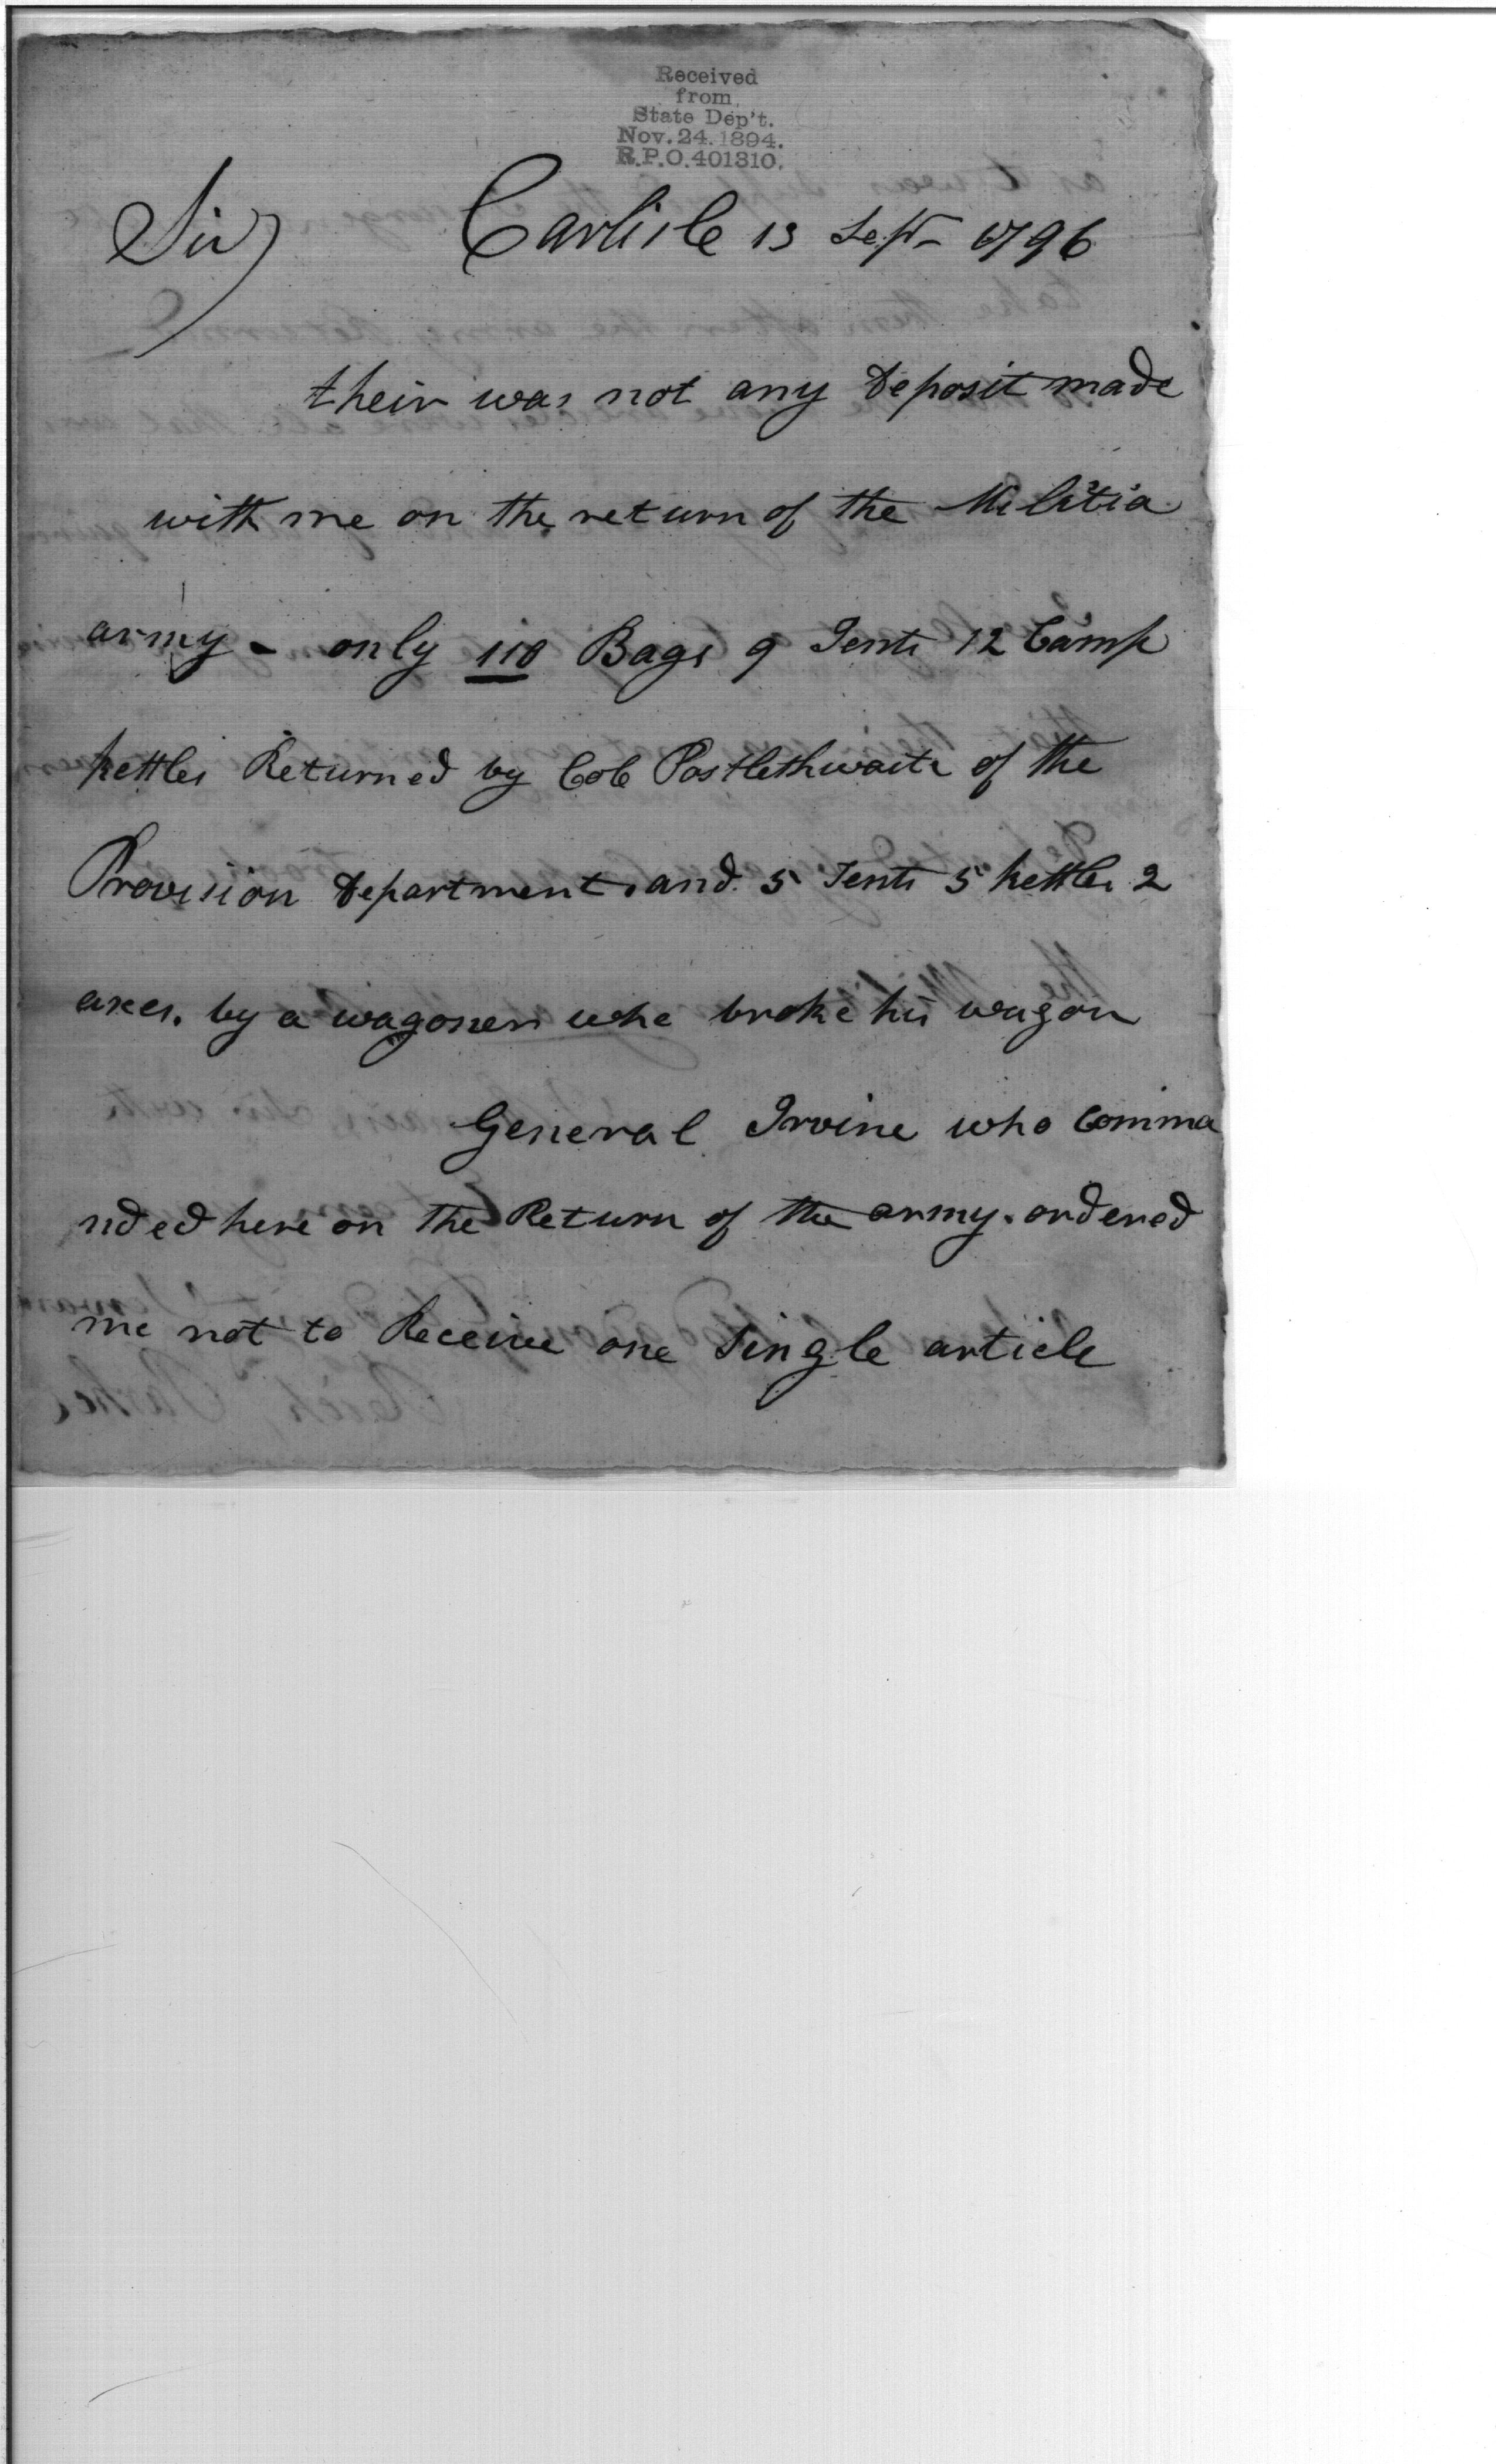 Received
from
State Dep't.
Nov. 24. 1894.
R.P.O. 401310.
Sir Carlisle 13 Sept- 1796
their was not any Deposit made
with me on the return of the Militia
army - only 110 Bags 9 Tents 12 Camp
kettles Returned by Col Postlethwaite of the
Provision Department. and 5 Tents 5 kettles 2
axes. by a wagoner who broke his wagon
General Irvine who Comma
nded here on the Return of the army. ordered
me not to Receive one single article